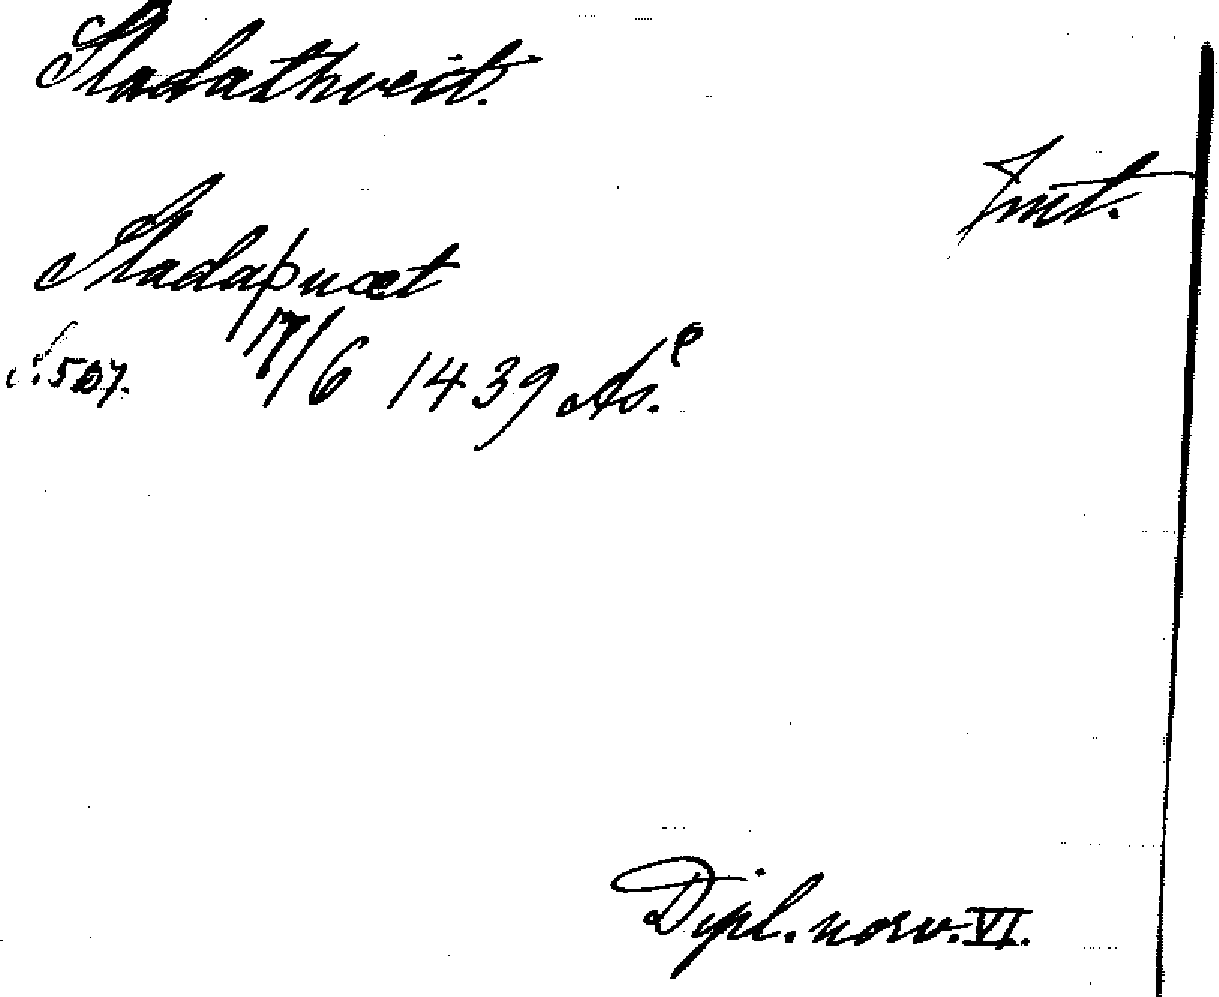 Sladathveit.
Jmt.
Sladaþuæt
S. 507. 17/6 1439 As.e
Dipl. norv. VI.